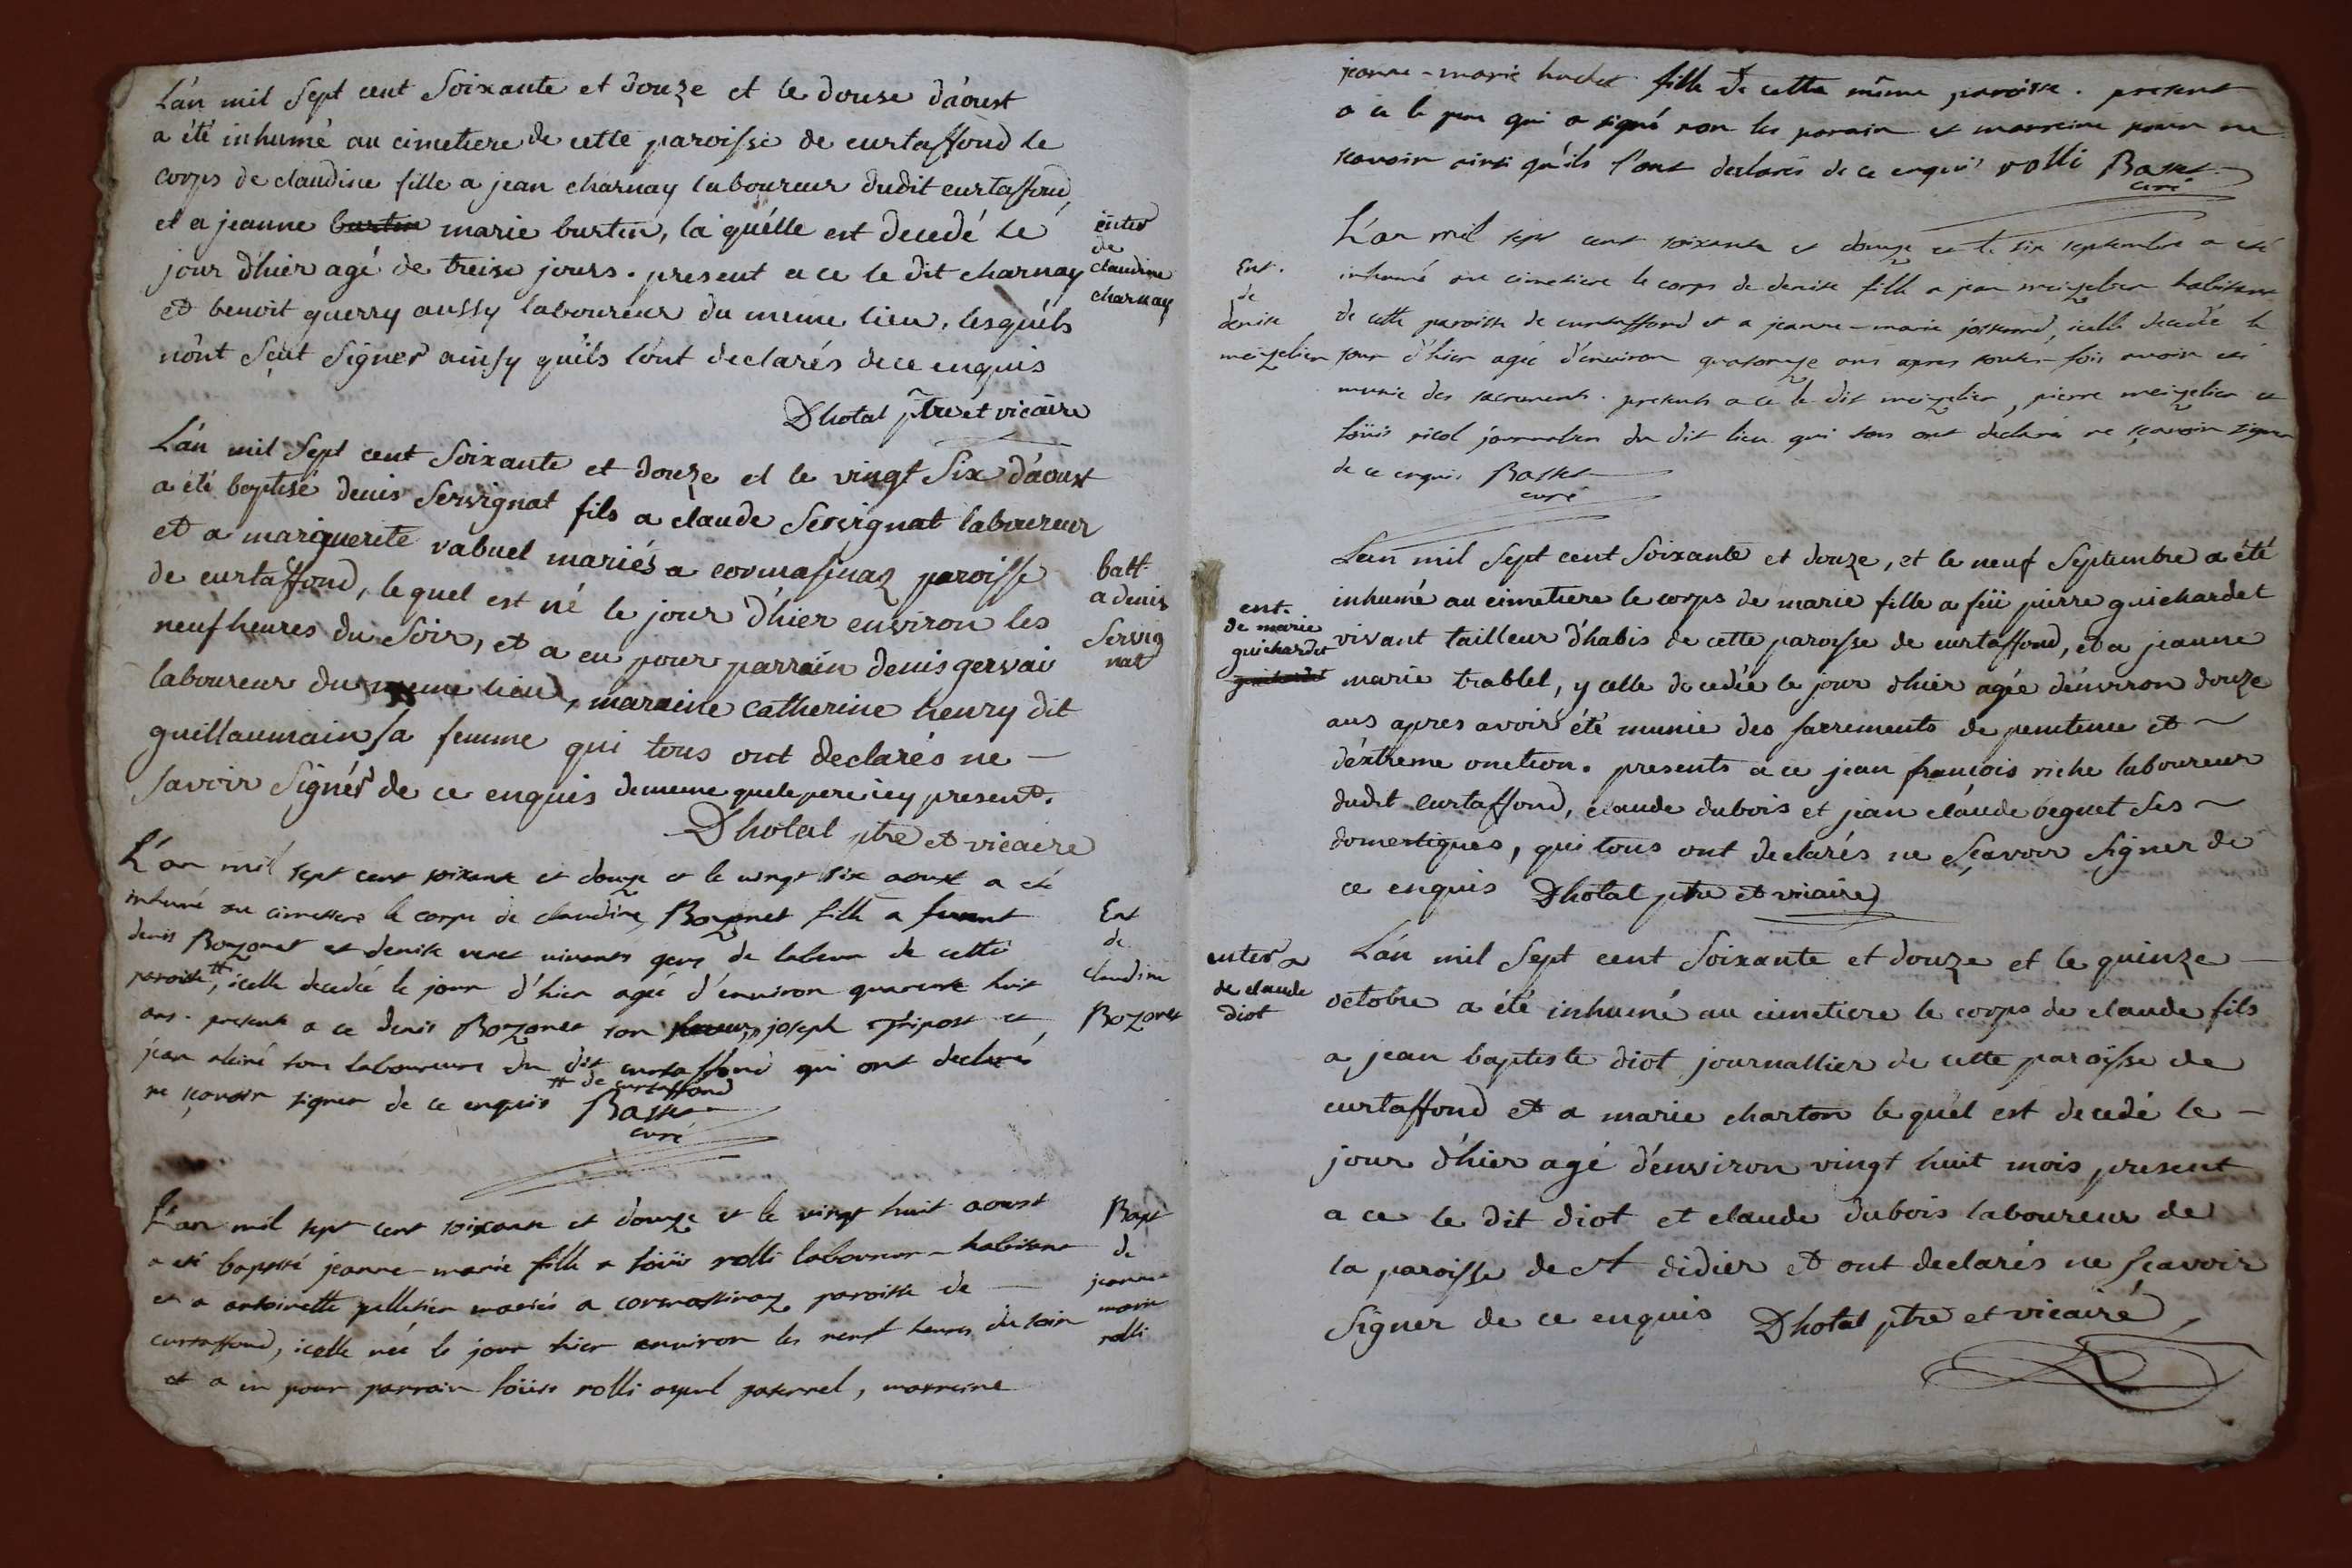 L'án mil Sept cent Soixante et douze et le douse d'áoust
a été inhumé au cimetiere de cette paroisse de curtaffond le
corps de claudine fille a jean charnay laboureur dudit curtaffond,
et a jeanne burtin marie burtin, la quélle est decedé le
jour d'hier agé de treise jours. present a ce le dit charnay
et benoit guerry aussy laboureur du meme lieu, lesquéls
n'ont sçut Signer ainsy quils l'ont declarés de ce enquis
Dhotal ptre et vicaire
enter
de
claudine
charnay
L'án mil Sept cent Soixante et douze et le vingt Six d'áoust
a été baptisé denis Servignat fils a claude Servignat laboureur
et a marguerite vabuel mariés a cormasinaz paroisse
de curtaffond, lequel est né le jour d'hier environ les
neuf heures du Soir, et a eu pour parrain denis gervai
laboureur du meme lieu, maraine catherine henry dit
guillaumain sa femme qui tous ont declarés ne —
savoir Signer de ce enquis de meme que le pere icy present.
Dhotal ptre et vicaire
batt
a denis
Servig
nat
L'an mil sept cent soixante et douze et le vingt six aoust a été
inhumé au cimettiere le corps de claudine Bozonet fille a furent
denis Bozonet et denise veret vivants gens de labeur de cette
paroisse #, icelle decedée le jour d'hier agée d'environ quarente huit
ans. presents a ce denis Bozonet son joseph Tripost et
jean tous laboureurs du dit curtaffond qui ont declaré
# de curtaffond
ne sçavoir signer de ce enquis Basset
curé
Ent
de
claudine
Bozonet
L'an mil sept cent soixante et douze et le vingt huit aoust
a été baptisé jeanne-marie fille a loüis rolli laboureur habitant
et a antoinette pelletier mariés a cormassinaz paroisse de —
curtaffond, icelle née le jour hier environ les neuf heures du soir
et a eu pour parrain loüis rolli ayeul paternel, marreine
Bapt
de
jeanne
marie
rolli
jeanne-marie huchet fille de cette même paroisse. present
a ce le pere qui a signé non les parain et marreine pour ne
scavoir ainsi qu'ils l'ont declarés de ce enquis rolli Basset
curé
L'an mil sept cent soixante et douze et le six septembre a été
inhumé au cimetiere le corps de denise fille a jean meizelier habitant
de cette paroisse de curtaffond et a jeanne-marie josserand, icelle decedée le
jour d'hier agée d'environ quatorze ans apres toutes fois avoir été
munie des sacrements. presents a ce le dit meizelier, pierre meizelier et
loüis ricol journaliers du dit lieu qui tous ont declaré ne sçavoir signer
de ce enquis Basset
curé
Ent.
de
denise
meizelier
L'an mil Sept cent Soixante et douze, et le neuf Septembre a été
inhumé au cimetiere le corps de marie fille a feü pierre guichardet
vivant tailleur d'habis de cette paroisse de curtaffond, et a jeanne
marie trablet, y celle decedée le jour d'hier agée d'environ douze
ans apres avoir été munie des sacrements de penitence et ~
d'éxtreme onction. presents a ce jean françois riche laboureur
dudit curtaffond, claude dubois et jean claude beguet ses ~
domestiques, qui tous ont declarés ne Sçavoir Signer de
ce enquis Dhotal ptre et vicaire
ent.
de marie
guichardet
guichardet
L'án mil Sept cent Soixante et douze et le quinze —
octobre a été inhumé au cimetiere le corps de claude fils
a jean baptiste diot journallier de cette paroisse de
curtaffond et a marie charton le quél est decedé le —
jour d'hier agé d'environ vingt huit mois, present
a ce le dit diot et claude dubois laboureur de
la paroisse de st didier et ont declarés ne Sçavoir
Signer de ce enquis Dhotal ptre et vicairé
enter
de claude
diot